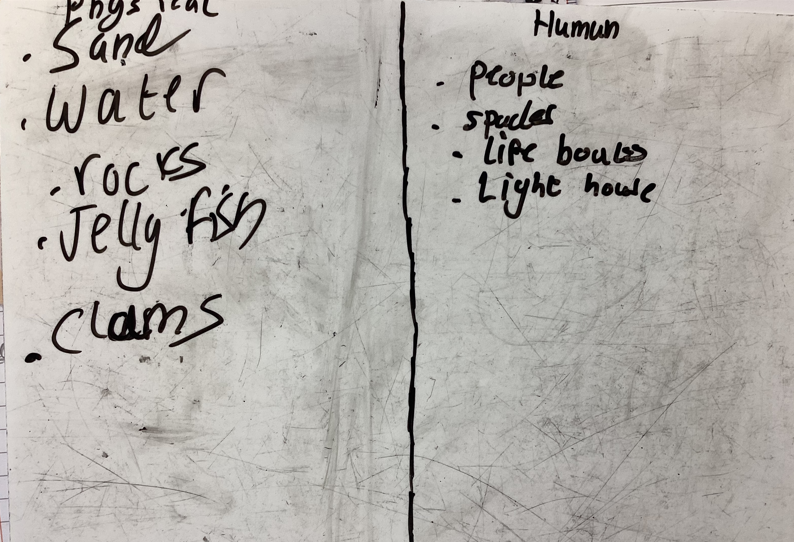 Physical
. Sand
. Water
. rocks
. Jelly fish
. Clams
Human
. People
. spades
. Life boats
. Light house